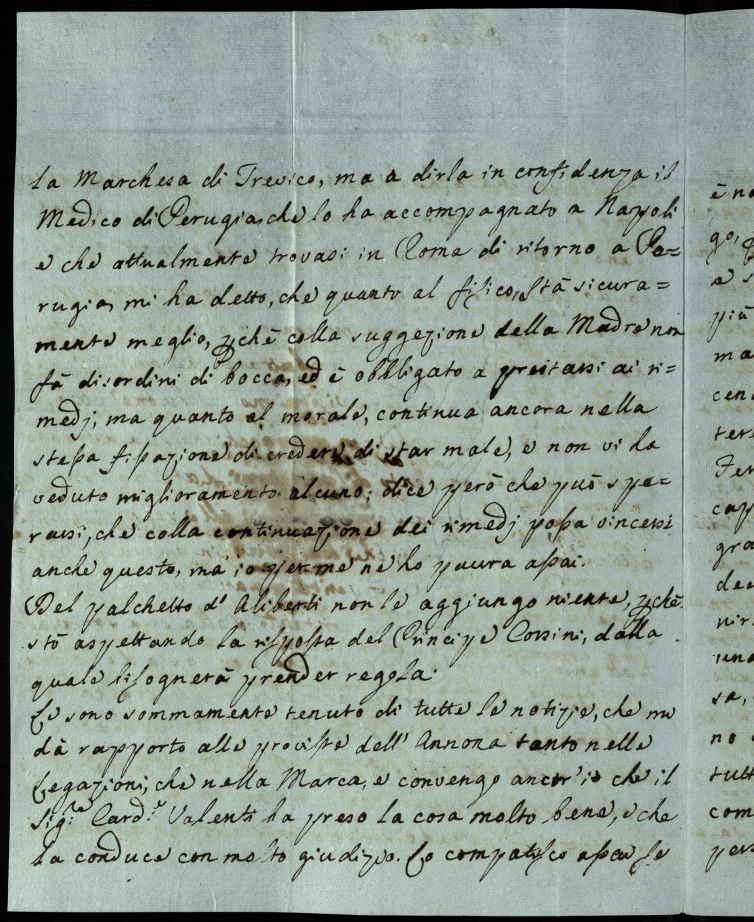 la Marchesa di Trevico, ma a dirla in confidenza il
Medico di Perugia, che lo ha accompagnato a Napoli
e che attualmente trovasi in Roma di ritorno a Pe=
rugia, mi ha detto, che quanto al fisico, stà sicura=
mente meglio, pchè colla suggezione della Madre non
fà disordini di bocca, ed è obbligato a prestarsi ai ri=
medj, ma quanto al morale, continua ancora nella
stessa fissazione di credere di star male, e non vi ha
veduto miglioramento alcuno; dice però che può spe=
rarsi, che colla continuazione dei rimedj possa vincersi
anche questo, ma io per me ne ho paura assai.
Del palchetto d' Aliberti non le aggiungo niente, pchè
stò aspettando la risposta del Principe Corsini, dalla
quale bisognerà prender regola.
Le sono sommamente tenuto di tutte le notizie, che mi
dà rapporto alle provviste dell' Annona tanto nelle
Legazioni, che nella Marca, e convengo ancor' io che il
Sig.r Card.e Valenti ha preso la cosa molto bene, e che
la conduce con molto giudizio. Lo compatisco assai se
è no
go, p
e s
più
ma
cen
ter
Fer
cap
gra
dee
nir
una
sa,
no
tutt
com
per